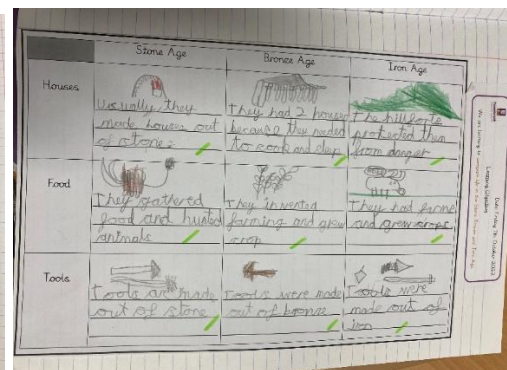 Stone Age
Bronze Age
Iron Age
Houses
Usually they
made houses out
of stones
They had 2 houses
because they needed
to cook and sleep
The hillforts
protected them
from danger
Food
They gathered
food and hunted
animals
They invented
farming and grew
crop
They had farms
and grew crops
Tools
Tools are made
out of stone
Tools were made
out of bronze
Tools were
made out of
iron
Date: Friday 7th October 2022
Learning Objective